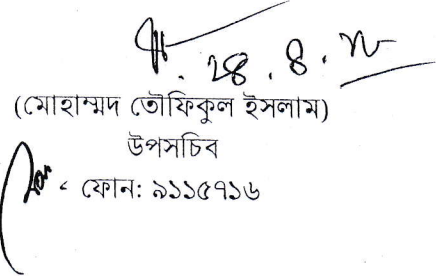 (মোহাম্মদ তৌফিকুল ইসলাম)
উপসচিব
ফোন: ৯১১৫৭১৬